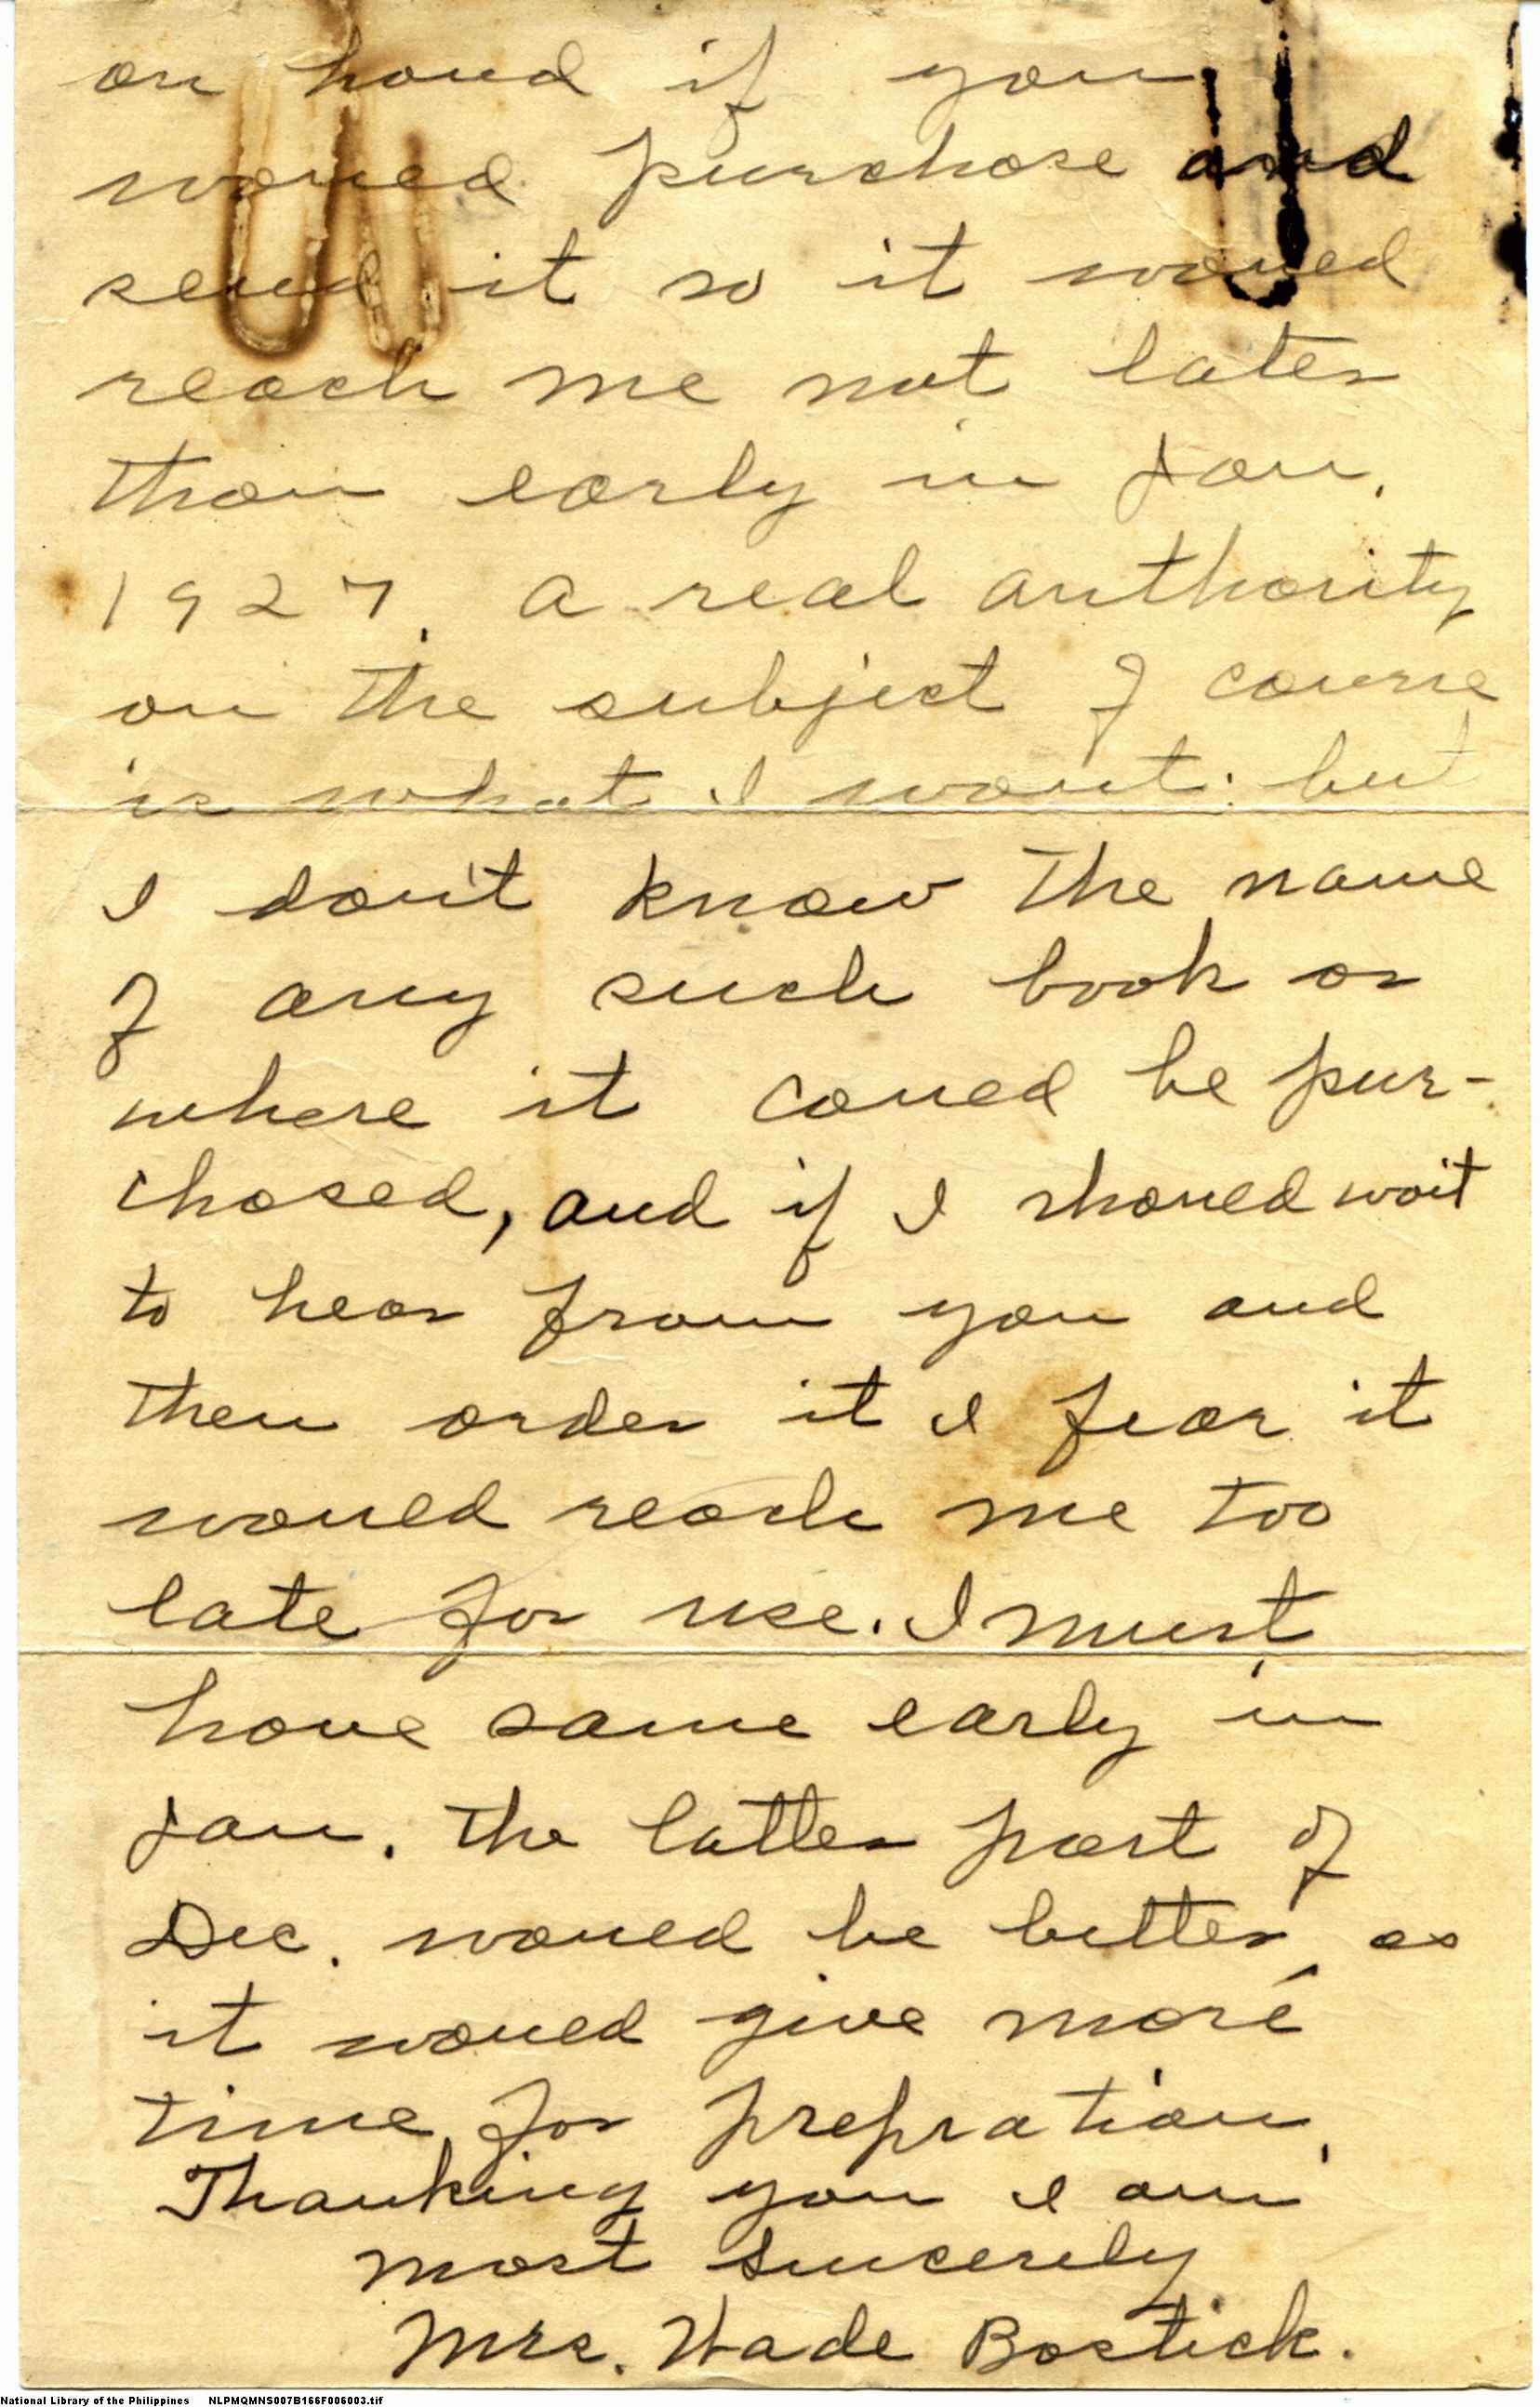 on hand if you
would purchase and
send it so it would
reach me not later
than early in Jan.
1927. a real authority
on the subject of course
is what I want: but
I don't know the name
of any such book or
where it could be pur-
chased, and if I should wait
to hear from you and
then order it I fear it
would reach me too
late for use. I must
have same early in
Jan. the latter part of
Dec. would be better, as
it would give more
time for prepration.
Thanking you I am
most sincerely
Mrs. Wade Bostick.
National Library of the Philippines NLPMQMNS007B166F006003.tif